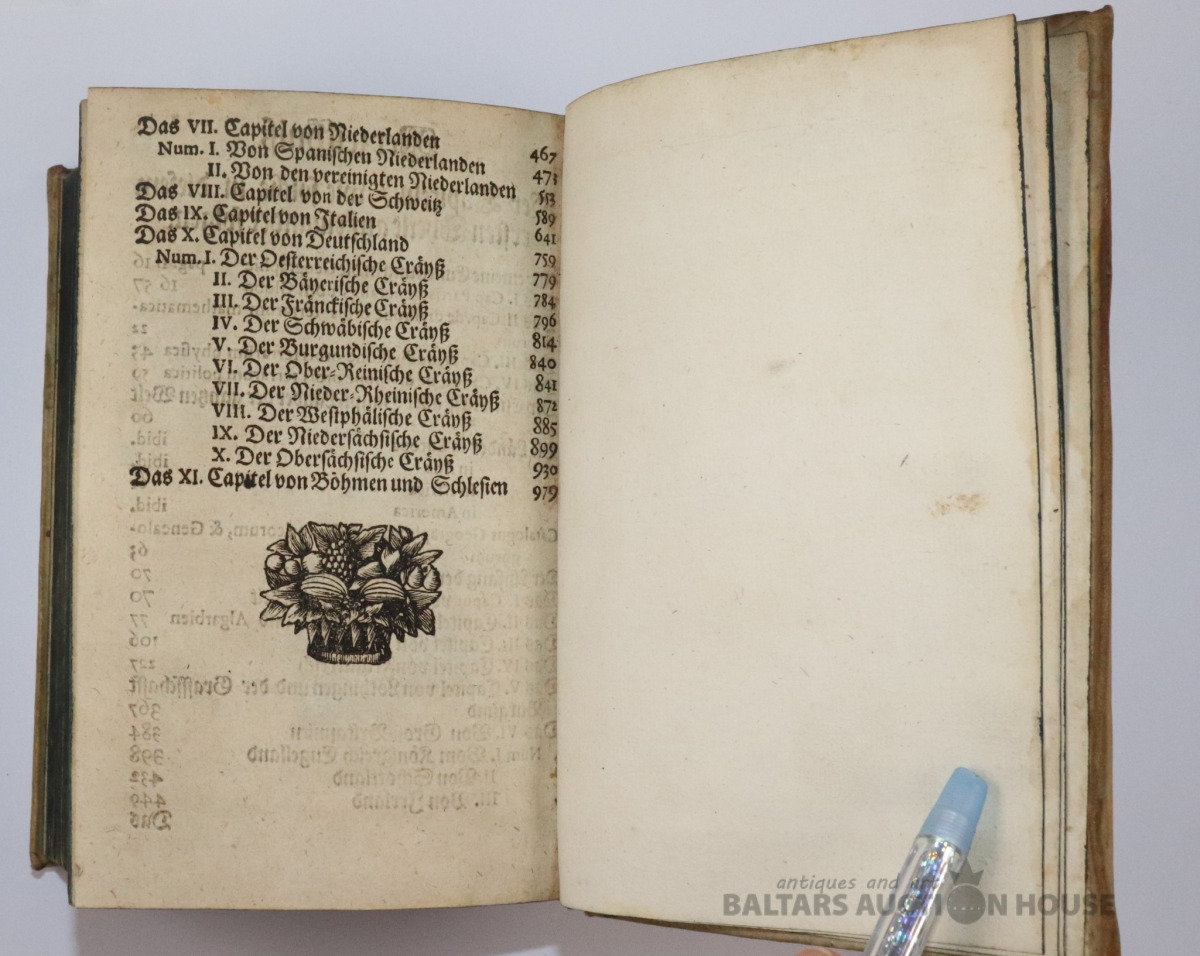 Das VII. Capitel von Niederlanden 467
Num. I. Von Spanischen Niederlanden 473
II. Von den vereinigten Niederlanden 553
Das VIII. Capitel von der Schweitz 589
Das IX. Capitel von Italien 641
Das X. Capitel von Deutschland 759
Num. I. Der Oesterreichische Cräyß 779
II. Der Bäyerische Cräyß 784
III. Der Fränckische Cräyß 796
IV. Der Schwäbische Cräyß 814
V. Der Burgundische Cräyß 840
VI. Der Ober-Reinische Cräyß 841
VII. Der Nieder-Rheinische Cräyß 872
VIII. Der Westphälische Cräyß 885
IX. Der Niedersächsische Cräyß 899
X. Der Obersächsische Cräyß 930
Das XI. Capitel von Böhmen und Schlesien 979
antiques and art
BALTARS AUCTION HOUSE